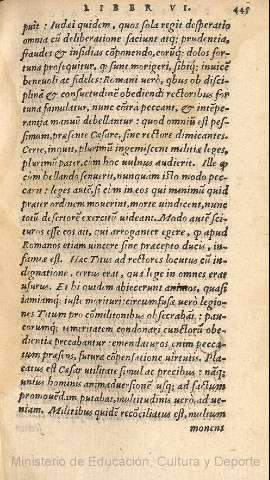 LIBER VI. 445
puit: Iudæi quidem, quos sola regit desperatio
omnia cū deliberatione faciunt atq; prudentia,
fraudes & insidias cōponendo, eorūq; dolos for-
tuna prosequitur, q̃ sunt morigeri, sibiq; inuicē
beneuoli ac fideles: Romani verò, qbus ob disci-
plinā & consuetudinē obediendi rectoribus for
tuna famulatur, nunc cōtrà peccant, & intēpe-
rantia manuū debellantur: quod omniū est pes-
simum, præsente Cæsare, sine rectore dimicantes.
Certe, inquit, plurimū ingemiscent militiæ leges,
plurimū pater, cùm hoc vulnus audierit. Ille q̃
cùm bellando senuerit, nunquam isto modo pec-
cauit: leges autē, si cùm in eos qui minimū quid
præter ordinem mouerint, morte vindicent, nunc
totū desertorē exercitū videant. Modo autē sci-
turos esse eos ait, qui arroganter egere, q̃ apud
Romanos etiam vincere sine præcepto ducis, in-
famia est. Hæc Titus ad rectores locutus cū in-
dignatione, certus erat, qua lege in omnes erat
vsurus. Et hi quidem abiecerunt animos, quasi
iamiāq; iuste morituri: circumfusæ verò legio-
nes Titum pro cōmilitonibus obsecrabāt: pau-
corumq; temeritatem condonari cunctorū obe-
dientia precabantur: emendaturos enim pecca-
tum præsens, futura cōpensatione virtutis. Pla-
catus est Cæsar vtilitate simul ac precibus: nāq;
vnius hominis animaduersionē vsq; ad factum
promouēdam putabat, multitudinis verò, ad ve-
niam. Militibus quidē recōciliatus est, multum
monens
Ministerio de Educación, Cultura y Deporte